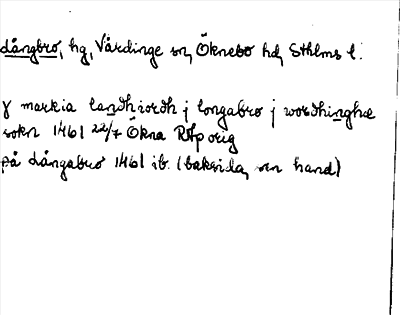 Långbro, hg, Vårdinge sn, Öknebo hd, Sthlms l.
j markia landhiordh j longabro j wordhinghæ
sokn 1461 22/7 Ökna RAp orig
på Långabro 1461 ib. (baksida, sen hand)